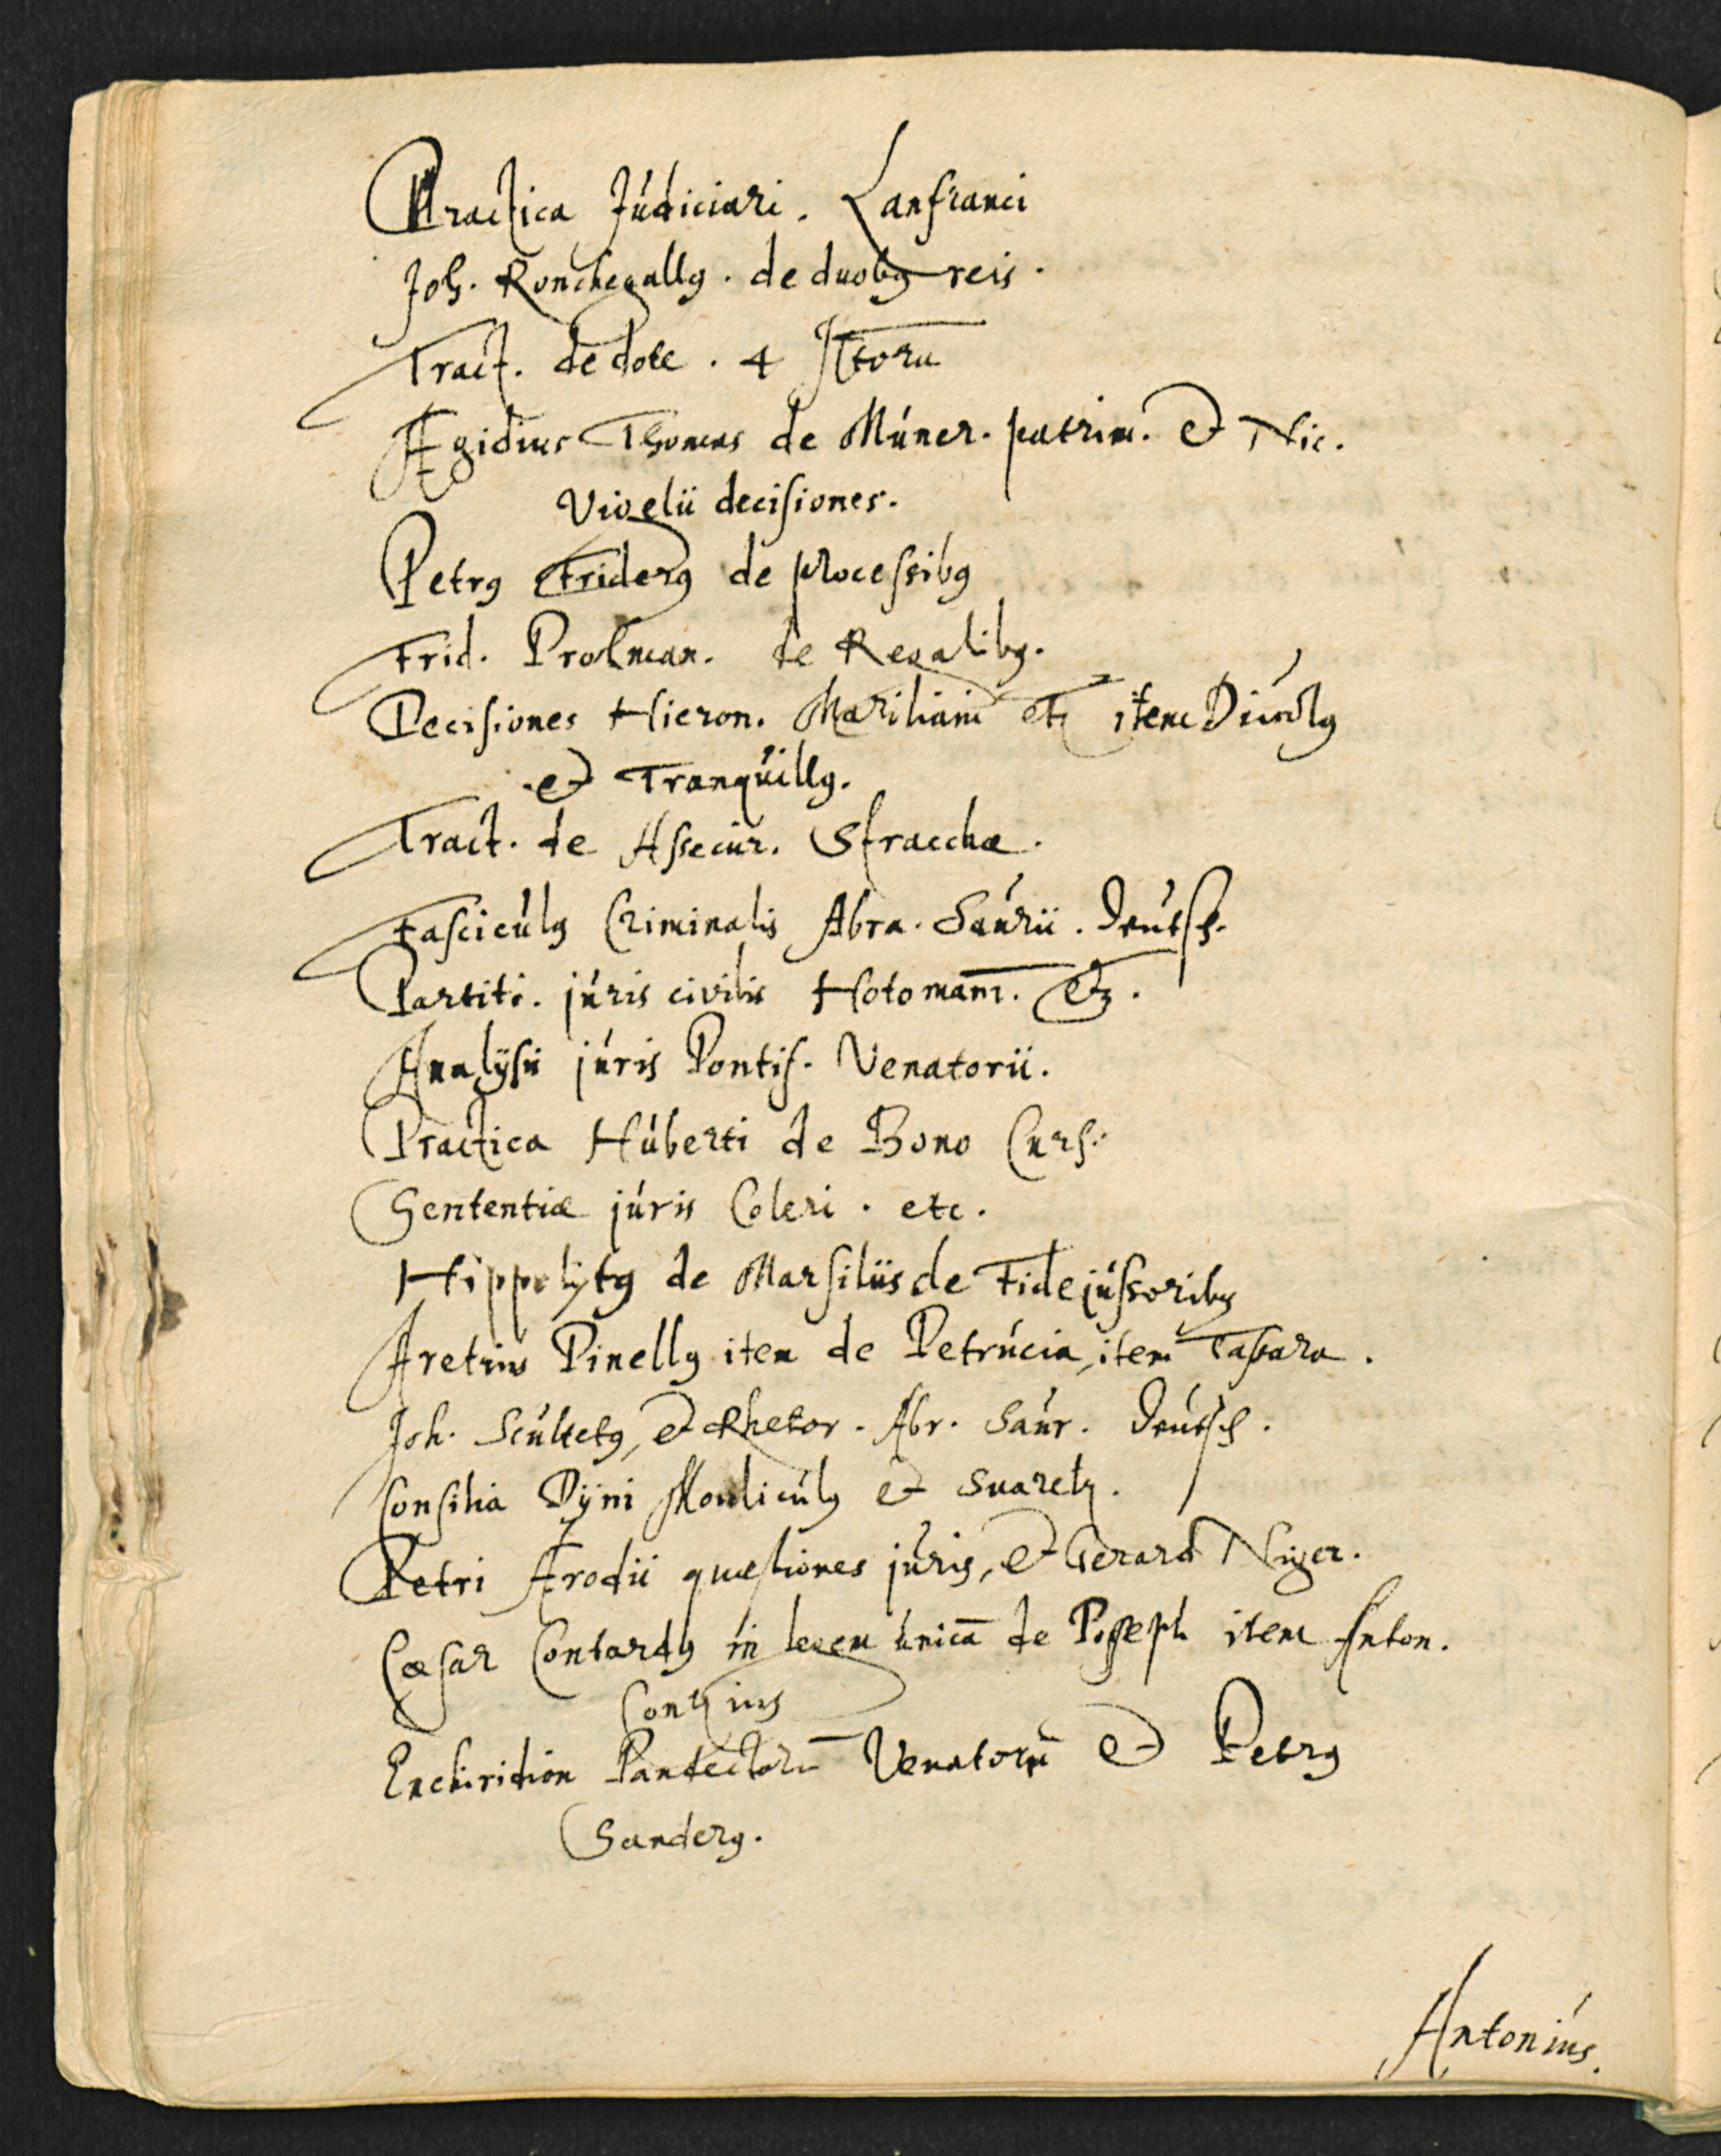 Practica Judiciari. Lanfranci
Joh. Ronchegallus. de duobus reis.
Tract. de dote. 4 JCtorū
Ægidius Thomas de Múner. patrim. et Nic.
Vigelii decisiones.
Petrus Friderus de processibus
Frid. Prockman. de Regalibus.
Decisiones Hieron. Mariliani etc item
et Tranquillus.
Tract. de Assecur. Stracchæ.
Fasciculus Criminalis Abra. Saúrii. Deútsch.
Partiti. júris civilis Hotomani. etc.
Analysis júris Pontif. Venatorii.
Practica Húberti de Bono Curs.
Sententiæ júris Coleri. etc.
Hippolytus de Marsiliis de Fidejússoribus
Aretius Pinellus item de Petrúcia, item
Joh. Scúltetus, et Rhetor. Abr. Saúr. Deútsch.
Consilia Dÿni et Suaretz.
Petri Ærodii quæstiones júris, et Gerard Niger.
Cæsar Contardus in legem únicā de Possess. item Anton.
Contzius
Enchiridion Pandectarū Venatorii et Petrus
Sanderus.
Antoniús.